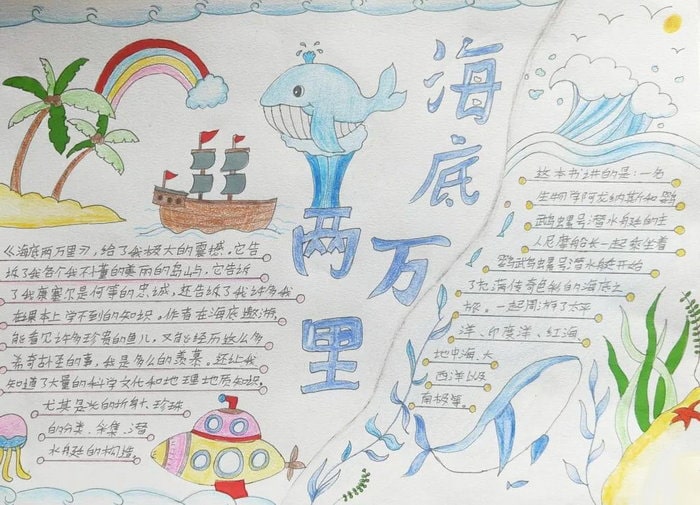 海底
两万
里
《海底两万里》,给了我极大的震撼。它告
诉了我各个我不懂的美丽的岛屿,它告诉
了我康塞尔是何等的忠诚,还告诉了我许多我
在课本上学不到的知识。作者在海底遨游,
能看见许多珍贵的鱼儿,又能经历这么多
希奇古怪的事,我是多么的羡慕。还让我
知道了大量的科学文化和地理地质知识。
尤其是光的折射、珍珠
的分类、采集、潜
水艇的构造。
这本书讲的是:一名
生物学阿龙纳斯和鹦
鹉螺号潜水艇的主
人尼摩船长一起乘坐着
鹦鹉螺号潜水艇开始
了充满传奇色彩的海底之
旅。一起周游了太平
洋、印度洋、红海
地中海、大
西洋以及
南极等。